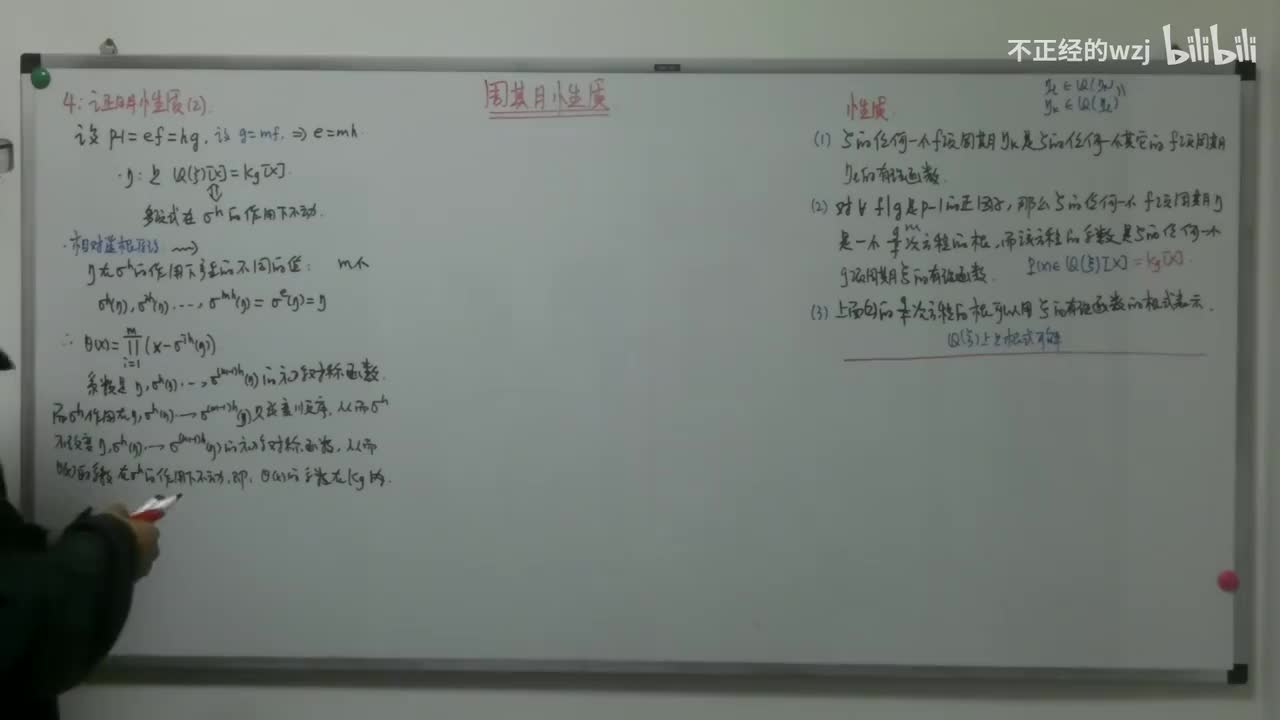 不正经的wzj bilibili
周期性质
4: 证明性质(2).
设 p-1=ef=hg, 设 g=mf, ⇒ e=mh.
· η: 是 Q(ξ)[X]=Kg[X].
⇕
多项式在 σ^h 的作用下不动.
η在σ^h的作用下产生的不同的值: m个
σ^h(η), σ^2h(η), ⋯, σ^mh(η)=σ^e(η)=η
∴ θ(x)=∏_{i=1}^{m}(x-σ^{ih}(η))
系数是 η, σ^h(η), ⋯, σ^{(m-1)h}(η) 的初等对称函数.
而σ^h作用在η, σ^h(η), ⋯, σ^{(m-1)h}(η)只改变顺序, 从而σ^h
不改变 η, σ^h(η), ⋯, σ^{(m-1)h}(η)的初等对称函数, 从而
θ(x)的系数在σ^h的作用下不动, 即, θ(x)的系数在Kg内.
性质
(1) ξ的任何一个f项周期ηk是ξ的任何一个其它的f项周期
的有理函数.
(2) 对∀ f|g是p-1的正因子, 那么ξ的任何一个f项周期η
是一个 次方程的根, 而该方程的系数是ξ的任何一个
g项周期ξ的有理函数. P(x)∈Q(ξ)[X]=Kg[X].
(3) 上面的 次方程的根可以用ξ的有理函数的根式表示.
Q(ξ)上是根式可解